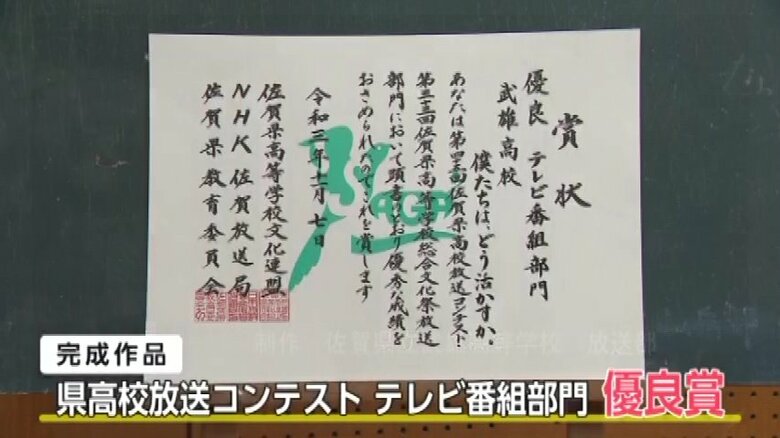 賞状
優良 テレビ番組部門
武雄高校
僕たちは、どう活かすか
佐賀県高校放送コンテスト
佐賀県高等学校総合文化祭放送
部門において頭書のとおり優秀な成績を
おさめられたのでこれを賞します
令和三年十一月七日
佐賀県高等学校文化連盟
NHK佐賀放送局
佐賀県教育委員会
SAGA
制作 佐賀県 高等学校 放送部
完成作品
県高校放送コンテスト テレビ番組部門 優良賞